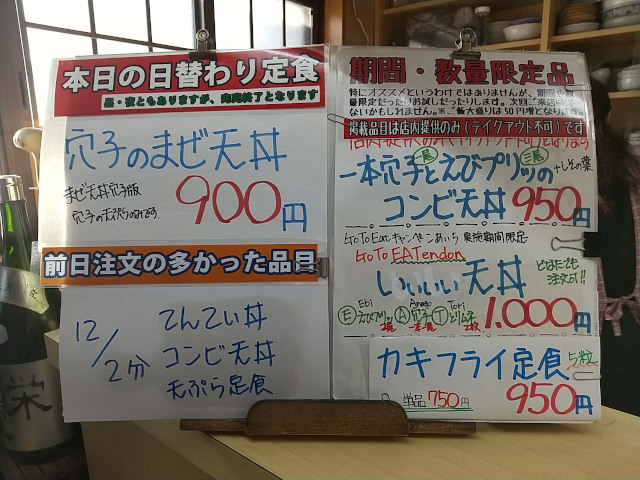 本日の日替わり定食
昼・夜ともありますが、完売終了となります
穴子のまぜ天丼
まぜ天丼穴子版
900円
前日注文の多かった品目
12/2分
てんてい丼
コンビ天丼
天ぷら定食
期間・数量限定品
特にオススメというわけではありませんが、期間や数
量限定だったりお試しだったりします。次回ご来店時は
ないかもしれません。※ご飯大盛りは50円増となり
掲載品目は店内提供のみ（テイクアウト不可）です
一本穴子と二尾えびプリッの三尾
+しその葉
コンビ天丼 950円
GoToEatキャンペーンあいち 実施期間限定
GoTo EATendon
いいいい天丼
どなたでも
注文可!!
Ebi Anago Tori
Ⓔえびプリッ Ⓐ穴子 Ⓣとりムネ
1.000円
カキフライ定食 5粒
単品750円
950円